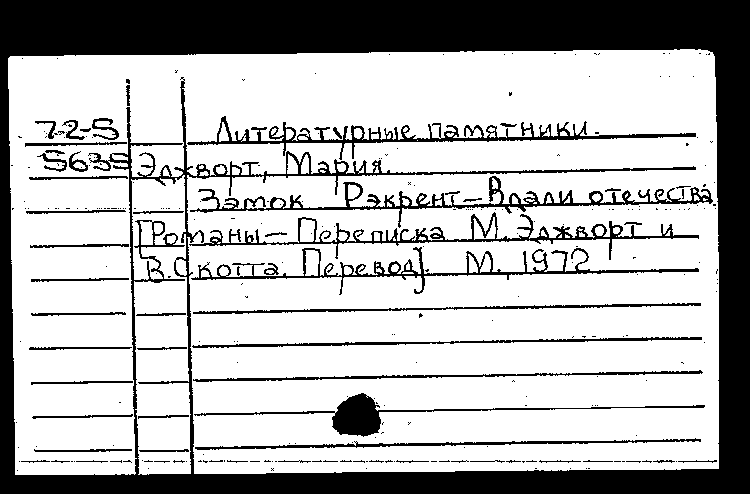 7-2-5 Литературные памятники.
5635 Эджворт, Мария.
Замок Рэкрент—Вдали отечества.
[Романы— Переписка М. Эджворт и
В.Скотта. Перевод]. М., 1972